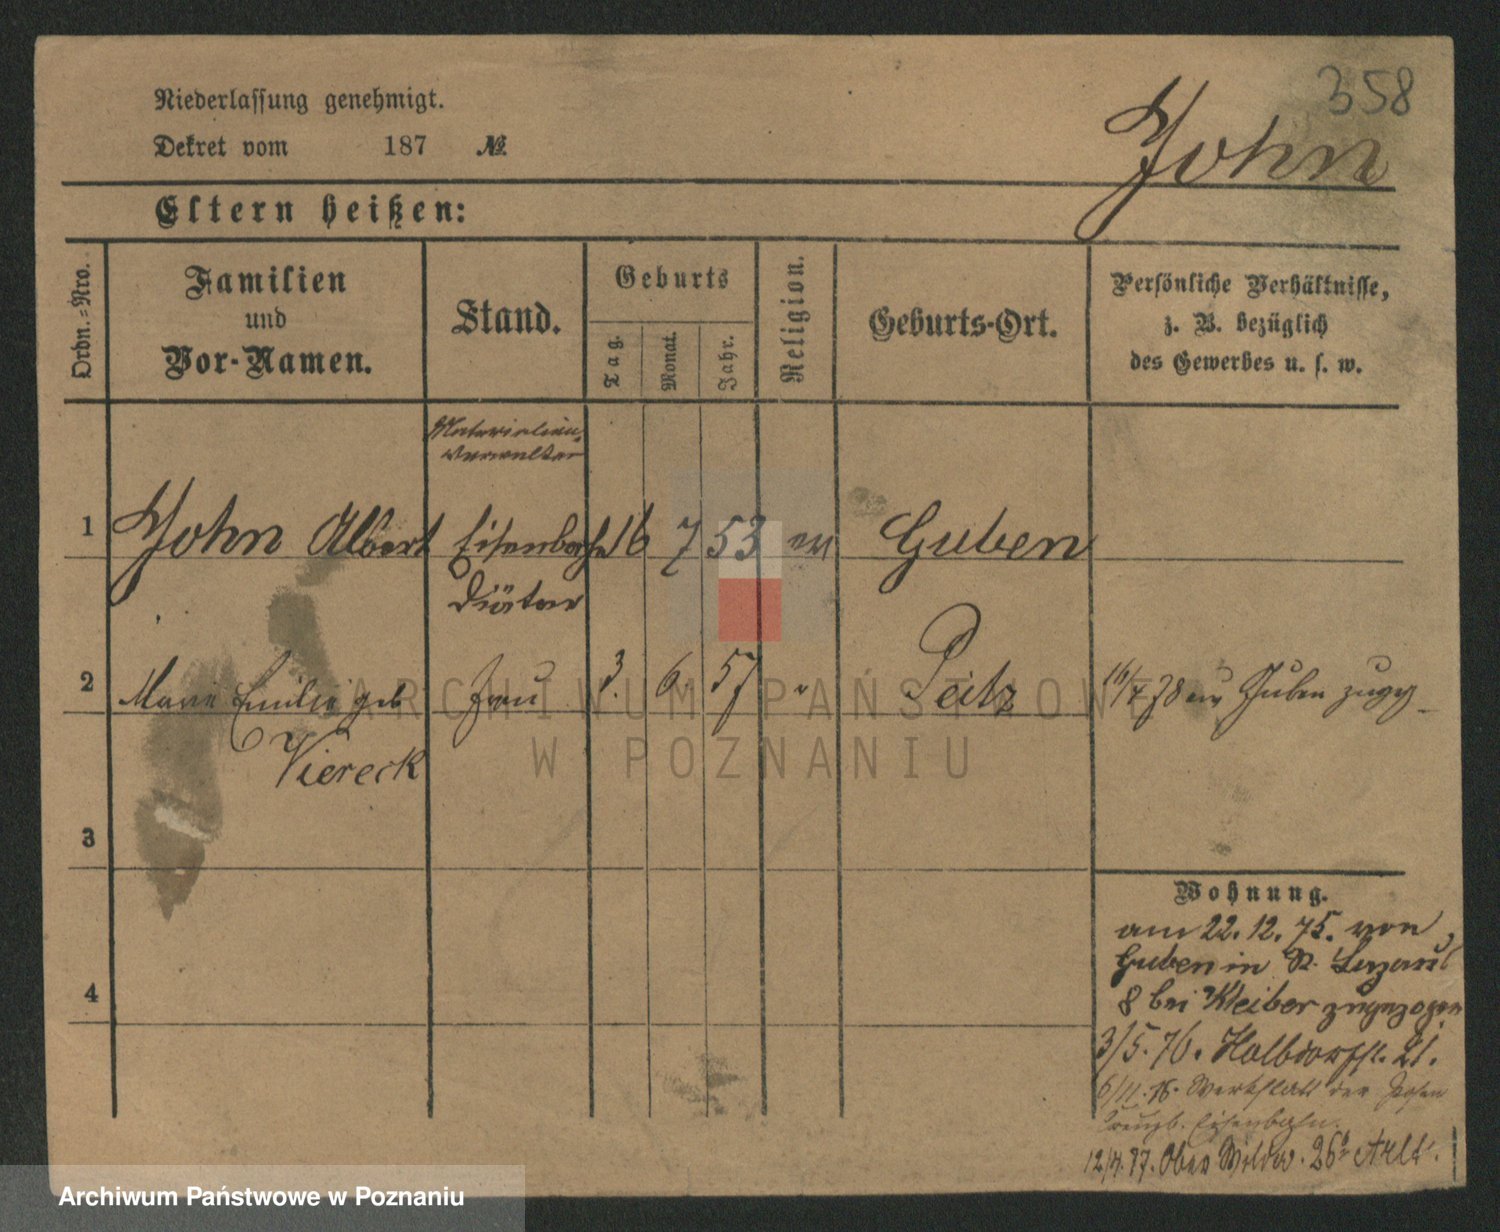 358
Niederlassung genehmigt.
John
Dekret vom 187 №
Eltern heißen:
Ordn.-Nro.
Familien
und
Vor-Namen.
Stand.
Geburts
Tag.
Monat.
Jahr.
Religion.
Geburts-Ort.
Persönliche Verhältnisse,
z. B. bezüglich
des Gewerbes u. s. w.
Materialien
Verwalter
1 John Albert Eisenbahn 16 7 53 ev Guben
Diätar
2 Marie Emilie geb Frau 3. 6 57 " Peitz 16/4 78 Guben zugez
Viereck
3
4
Wohnung.
am 22. 12. 75. von
Guben in St. Lazarus
8 bei Kleiber zugezogen
3/5. 76. Halbdorfst. 21.
6/11. 76. Werkstatt der Posen
Creuzb. Eisenbahn.
12/4. 77. Ober Wilda. 26
ARCHIWUM PAŃSTWOWE
W POZNANIU
Archiwum Państwowe w Poznaniu